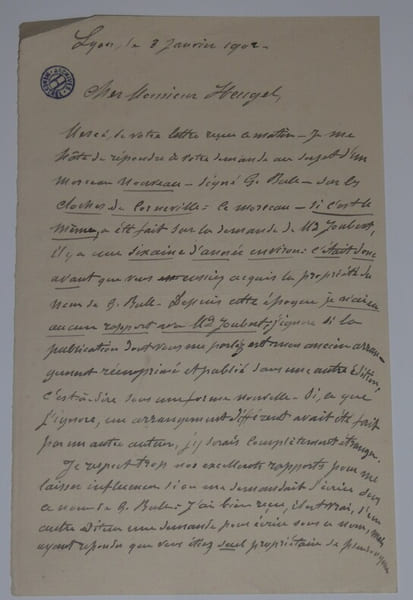 Lyon, le 8 Janvier 1902
Cher Monsieur Heugel,
Merci de votre lettre reçue ce matin – Je me
hâte de répondre à votre demande au sujet d'un
morceau nouveau – signé G. Bull – sur les
cloches de Corneville: ce morceau – si c'est le
même, a été fait sur la demande de Md Joubert,
il y a une dixaine d'année environ: c'était donc
avant que vous eussiez acquis la propriété du
nom de G. Bull – Depuis cette époque je n'ai eu
aucun rapport avec Md Joubert, j'ignore si la
publication dont vous me parlez est mon ancien arran-
gement réimprimé et publié dans une autre édition,
c'est-à-dire sous une forme nouvelle – Si, ce que
j'ignore, un arrangement différent avait été fait
par un autre auteur, j'y serais complètement étranger.
Je respecte trop nos excellents rapports pour me
laisser influencer si on me demandait d'écrire sous
ce nom de G. Bull – J'ai bien reçu, il est vrai, d'un
autre Editeur une demande pour écrire sous ce nom, mais
ayant répondu que vous étiez seul propriétaire de